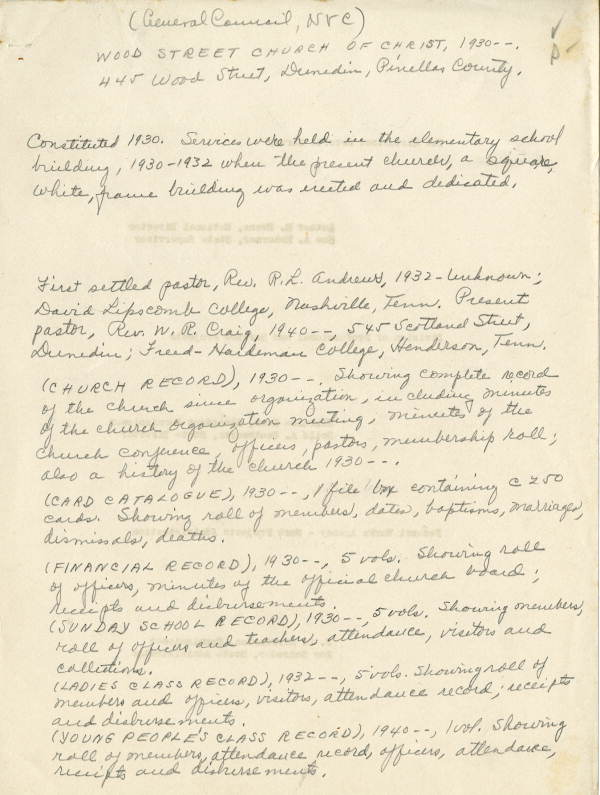 (General Council, NVC)
WOOD STREET CHURCH OF CHRIST, 1930--.
445 Wood Street, Dunedin, Pinellas County.
Constituted 1930. Services were held in the elementary school
building, 1930-1932 when the present church, a square,
white, frame building was erected and dedicated.
First settled pastor, Rev. R. L. Andrews, 1932-Unknown;
David Lipscomb College, Nashville, Tenn. Present
pastor, Rev. W. R. Craig, 1940--, 545 Scotland Street,
Dunedin; Freed-Hardeman College, Henderson, Tenn.
(CHURCH RECORD), 1930--. Showing complete record
of the church since organization, including minutes
of the church organization meeting, minutes of the
church conference, officers, pastors, membership roll;
also a history of the church 1930--.
(CARD CATALOGUE), 1930--, 1 file box containing c 250
cards. Showing roll of members, dates, baptisms, marriages,
dismissals, deaths.
(FINANCIAL RECORD), 1930--, 5 vols. Showing roll
of officers, minutes of the official church board;
receipts and disbursements.
(SUNDAY SCHOOL RECORD), 1930--, 5 vols. Showing members,
roll of officers and teachers, attendance, visitors and
collections.
(LADIES CLASS RECORD), 1932--, 5 vols. Showing roll of
members and officers, visitors, attendance record; receipts
and disbursements.
(YOUNG PEOPLE'S CLASS RECORD), 1940--, 1 vol. Showing
roll of members, attendance record, officers, attendance,
receipts and disbursements.